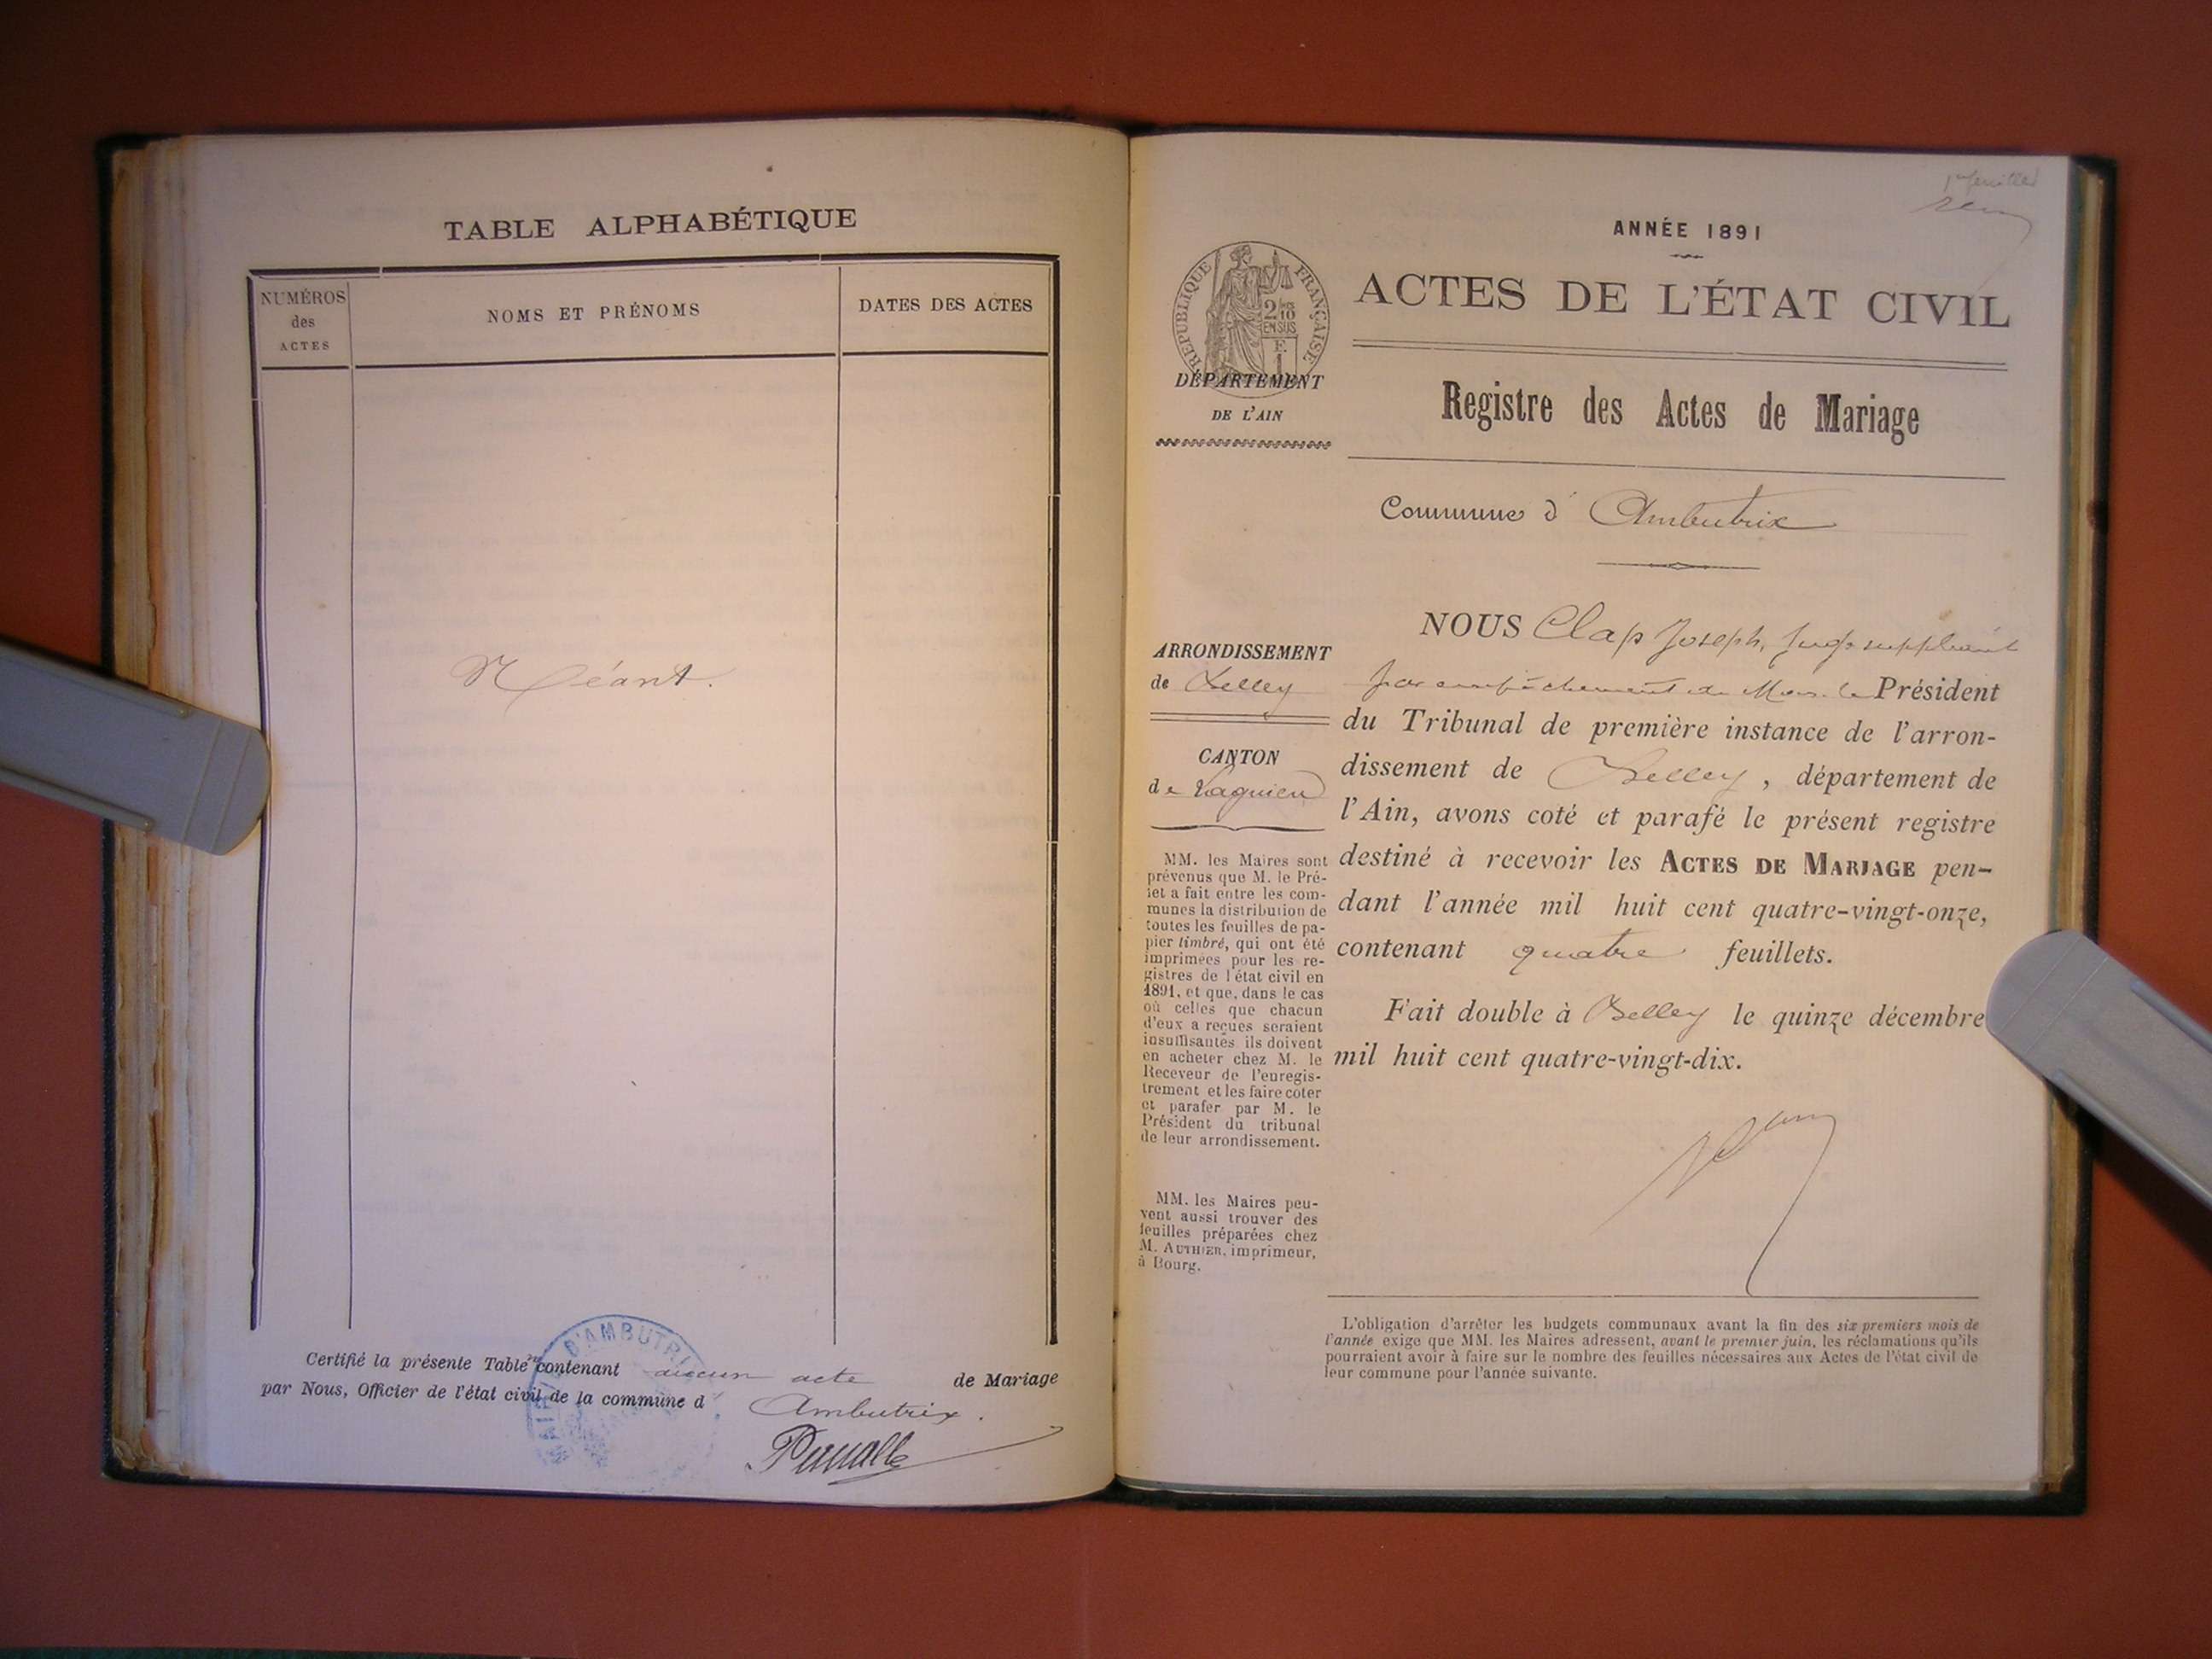 TABLE ALPHABÉTIQUE
NUMÉROS
des
ACTES
NOMS ET PRÉNOMS
DATES DES ACTES
Néant.
D'AMBUTRI
Certifié la présente Table contenant aucun acte de Mariage
par Nous, Officier de l'état civil de la commune d' Ambutrix.
1er feuillet
ANNÉE 1891
RÉPUBLIQUE FRANÇAISE
2/10
EN SUS
ACTES DE L'ÉTAT CIVIL
DÉPARTEMENT
DE L'AIN
Registre des Actes de Mariage
Commune d' Ambutrix
ARRONDISSEMENT
de Belley
CANTON
de Lagnieu
MM. les Maires sont
prévenus que M. le Pré-
fet a fait entre les com-
munes la distribution de
toutes les feuilles de pa-
pier timbré, qui ont été
imprimées pour les re-
gistres de l'état civil en
1891, et que, dans le cas
où celles que chacun
d'eux a reçues seraient
insuffisantes ils doivent
en acheter chez M. le
Receveur de l'enregis-
trement et les faire coter
et parafer par M. le
Président du tribunal
de leur arrondissement.
MM. les Maires peu-
vent aussi trouver des
feuilles préparées chez
M. AUTHIER, imprimeur,
à Bourg.
NOUS Clap Joseph, Juge suppléant
par empêchement de Mons. le Président
du Tribunal de première instance de l'arron-
dissement de Belley, département de
l'Ain, avons coté et parafé le présent registre
destiné à recevoir les ACTES DE MARIAGE pen-
dant l'année mil huit cent quatre-vingt-onze,
contenant quatre feuillets.
Fait double à Belley le quinze décembre
mil huit cent quatre-vingt-dix.
L'obligation d'arrêter les budgets communaux avant la fin des six premiers mois de
l'année exige que MM. les Maires adressent, avant le premier juin, les réclamations qu'ils
pourraient avoir à faire sur le nombre des feuilles nécessaires aux Actes de l'état civil de
leur commune pour l'année suivante.